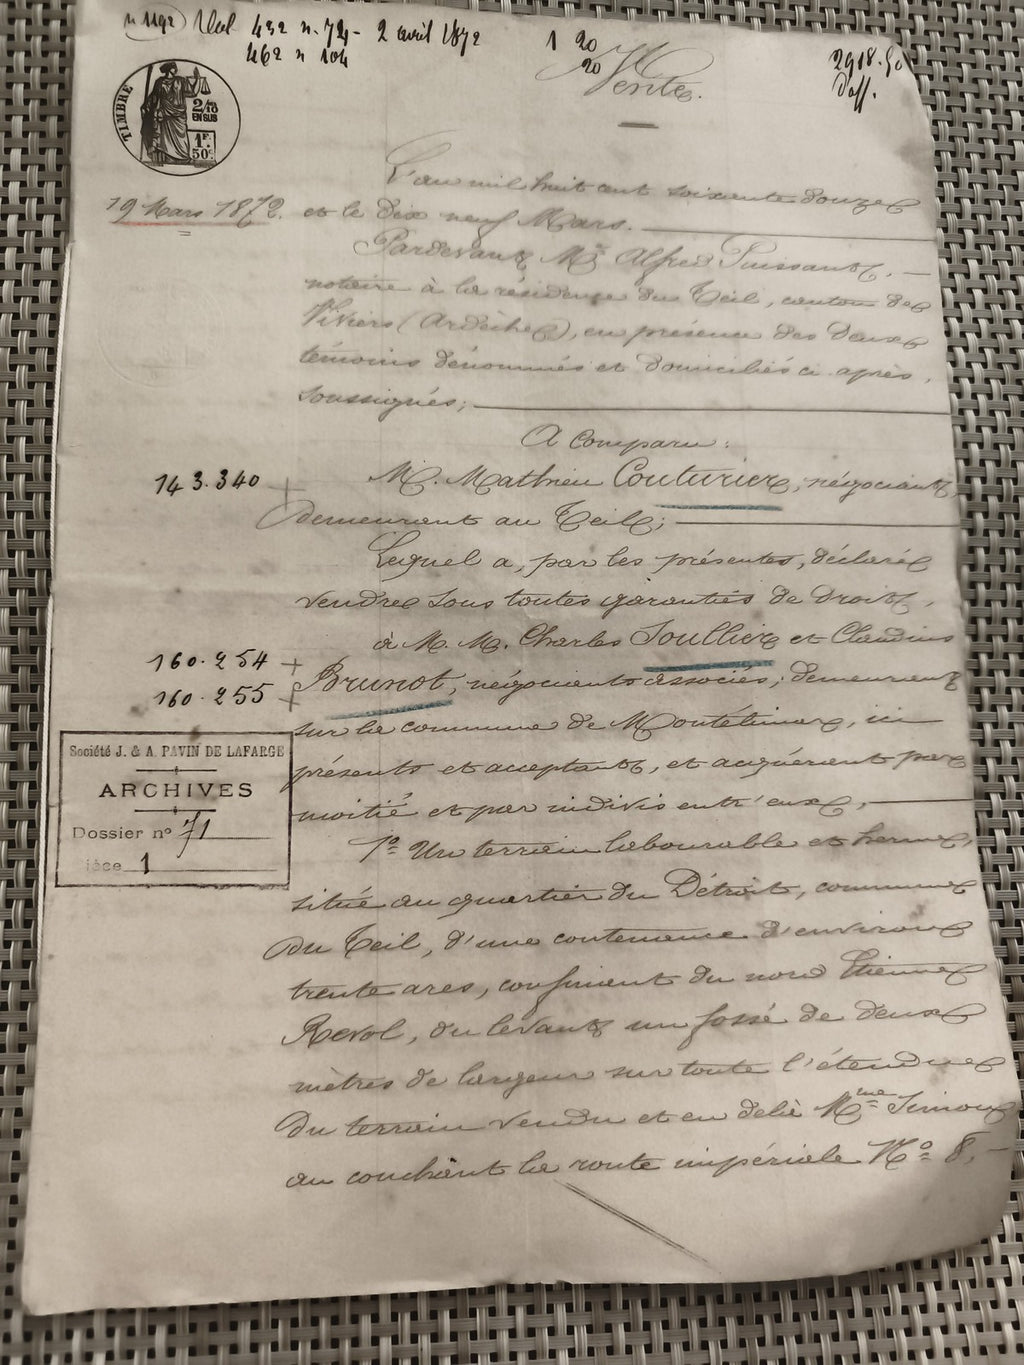 n 1192 Vol. 432 n. 74 - 2 avril 1872
462 n 104
1 20
20
2918.50
Doff.
Vente.
TIMBRE
2/10
EN SUS
1F.
50c
L'an mil huit cent soixante douze
19 Mars 1872. et le dix neuf Mars.
Pardevant Me Alfred Puissant,
notaire à la résidence du Teil, canton de
Viviers (Ardèche), en présence des deux
témoins dénommés et domiciliés ci après,
soussignés;
A comparu:
143.340
M. Mathieu Couturier, négociant,
demeurant au Teil;
Lequel a, par les présentes, déclaré
vendre sous toutes garanties de droit,
à M. M. Charles Soullier et Claudius
160.254
160.255
Brunot, négociants associés, demeurant
sur la commune de Montélimar, ici
présents et acceptant, et acquérant par
moitié et par indivis entr'eux,
Société J. & A. PAVIN DE LAFARGE
ARCHIVES
Dossier no 71
ièce 1
1o Un terrain labourable et herme,
situé au quartier du Détroit, commune
du Teil, d'une contenance d'environ
trente ares, confinant du nord Etienne
Revol, du levant un fossé de deux
mètres de largeur sur toute l'étendue
du terrain vendu et en delà Mme Simon
au couchant la route impériale No 8,